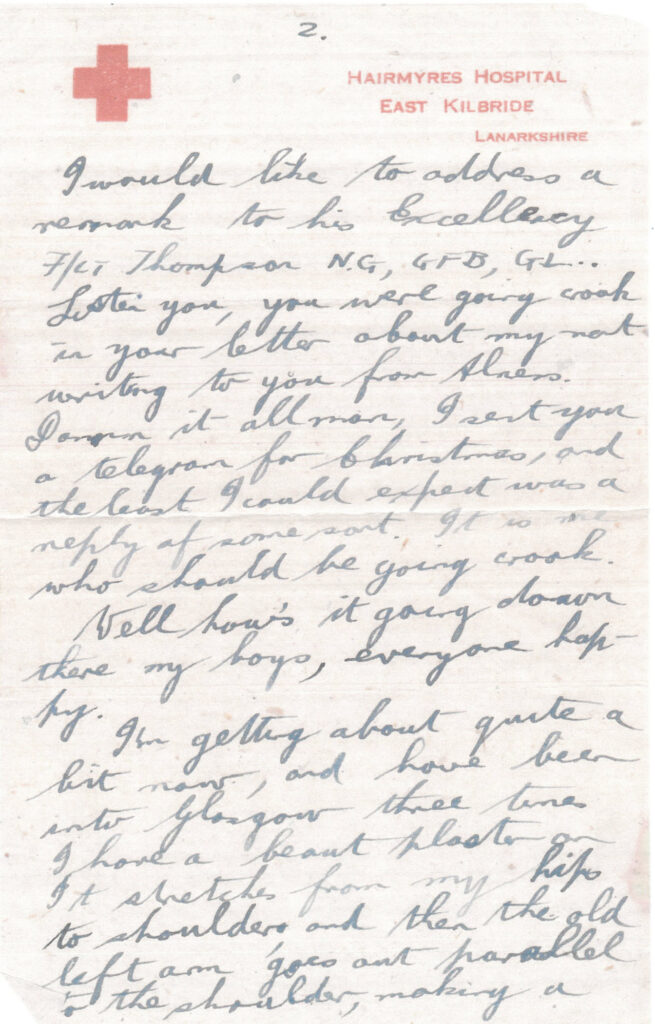 2.
HAIRMYRES HOSPITAL
EAST KILBRIDE
LANARKSHIRE
I would like to address a
remark to his Excellency
F/Lt Thompson N.G, GFB, GL...
Listen you, you were going crook
in your letter about my not
writing to you from Alness.
Damn it all man, I sent you
a telegram for Christmas, and
the least I could expect was a
reply of some sort. It is me
who should be going crook.
Well how's it going down
there my boys, everyone hap-
py.
I'm getting about quite a
bit now, and have been
into Glasgow three times
I have a beaut plaster on
It stretches from my hips
to shoulders and then the old
left arm goes out parallel
to the shoulder, making a